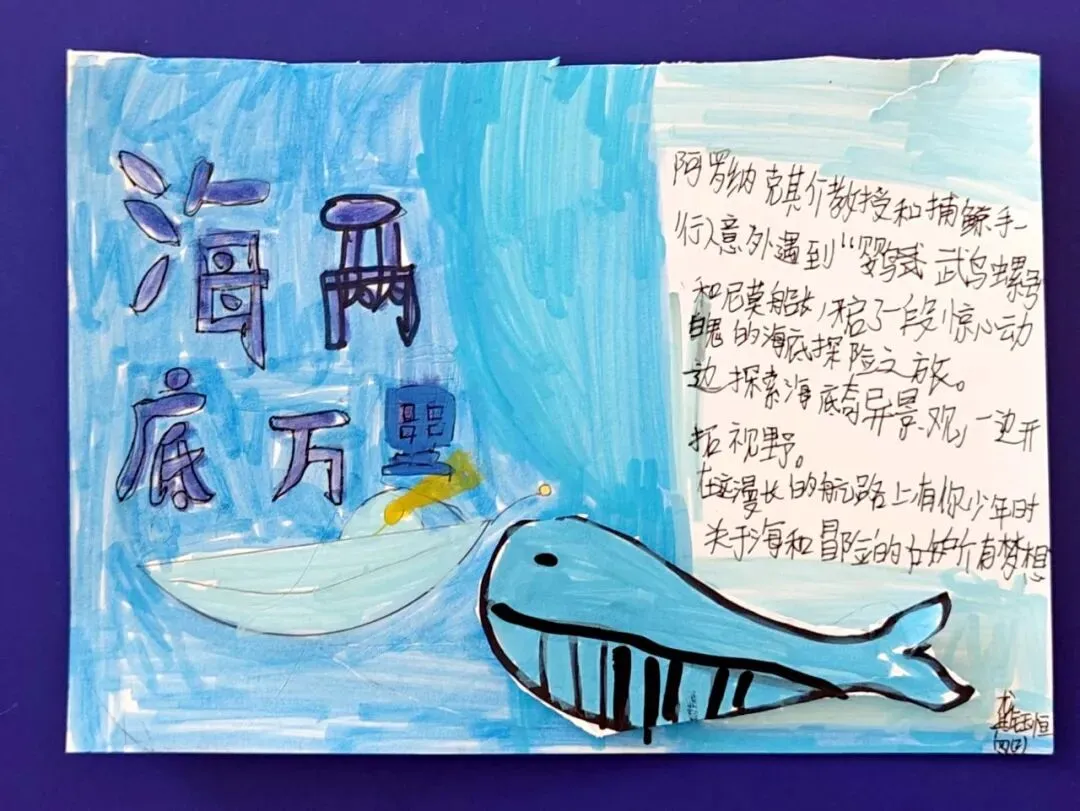 海两
底万里
阿罗纳克其介教授和捕鲸手一
行人意外遇到“鹦鹉 武鸟螺号
和尼莫船长,开启了一段惊心动
魄的海底探险之旅。
边探索海底奇异景观,一边开
拓视野。
在这漫长的航路上有你少年时
关于海和冒险的所有梦想